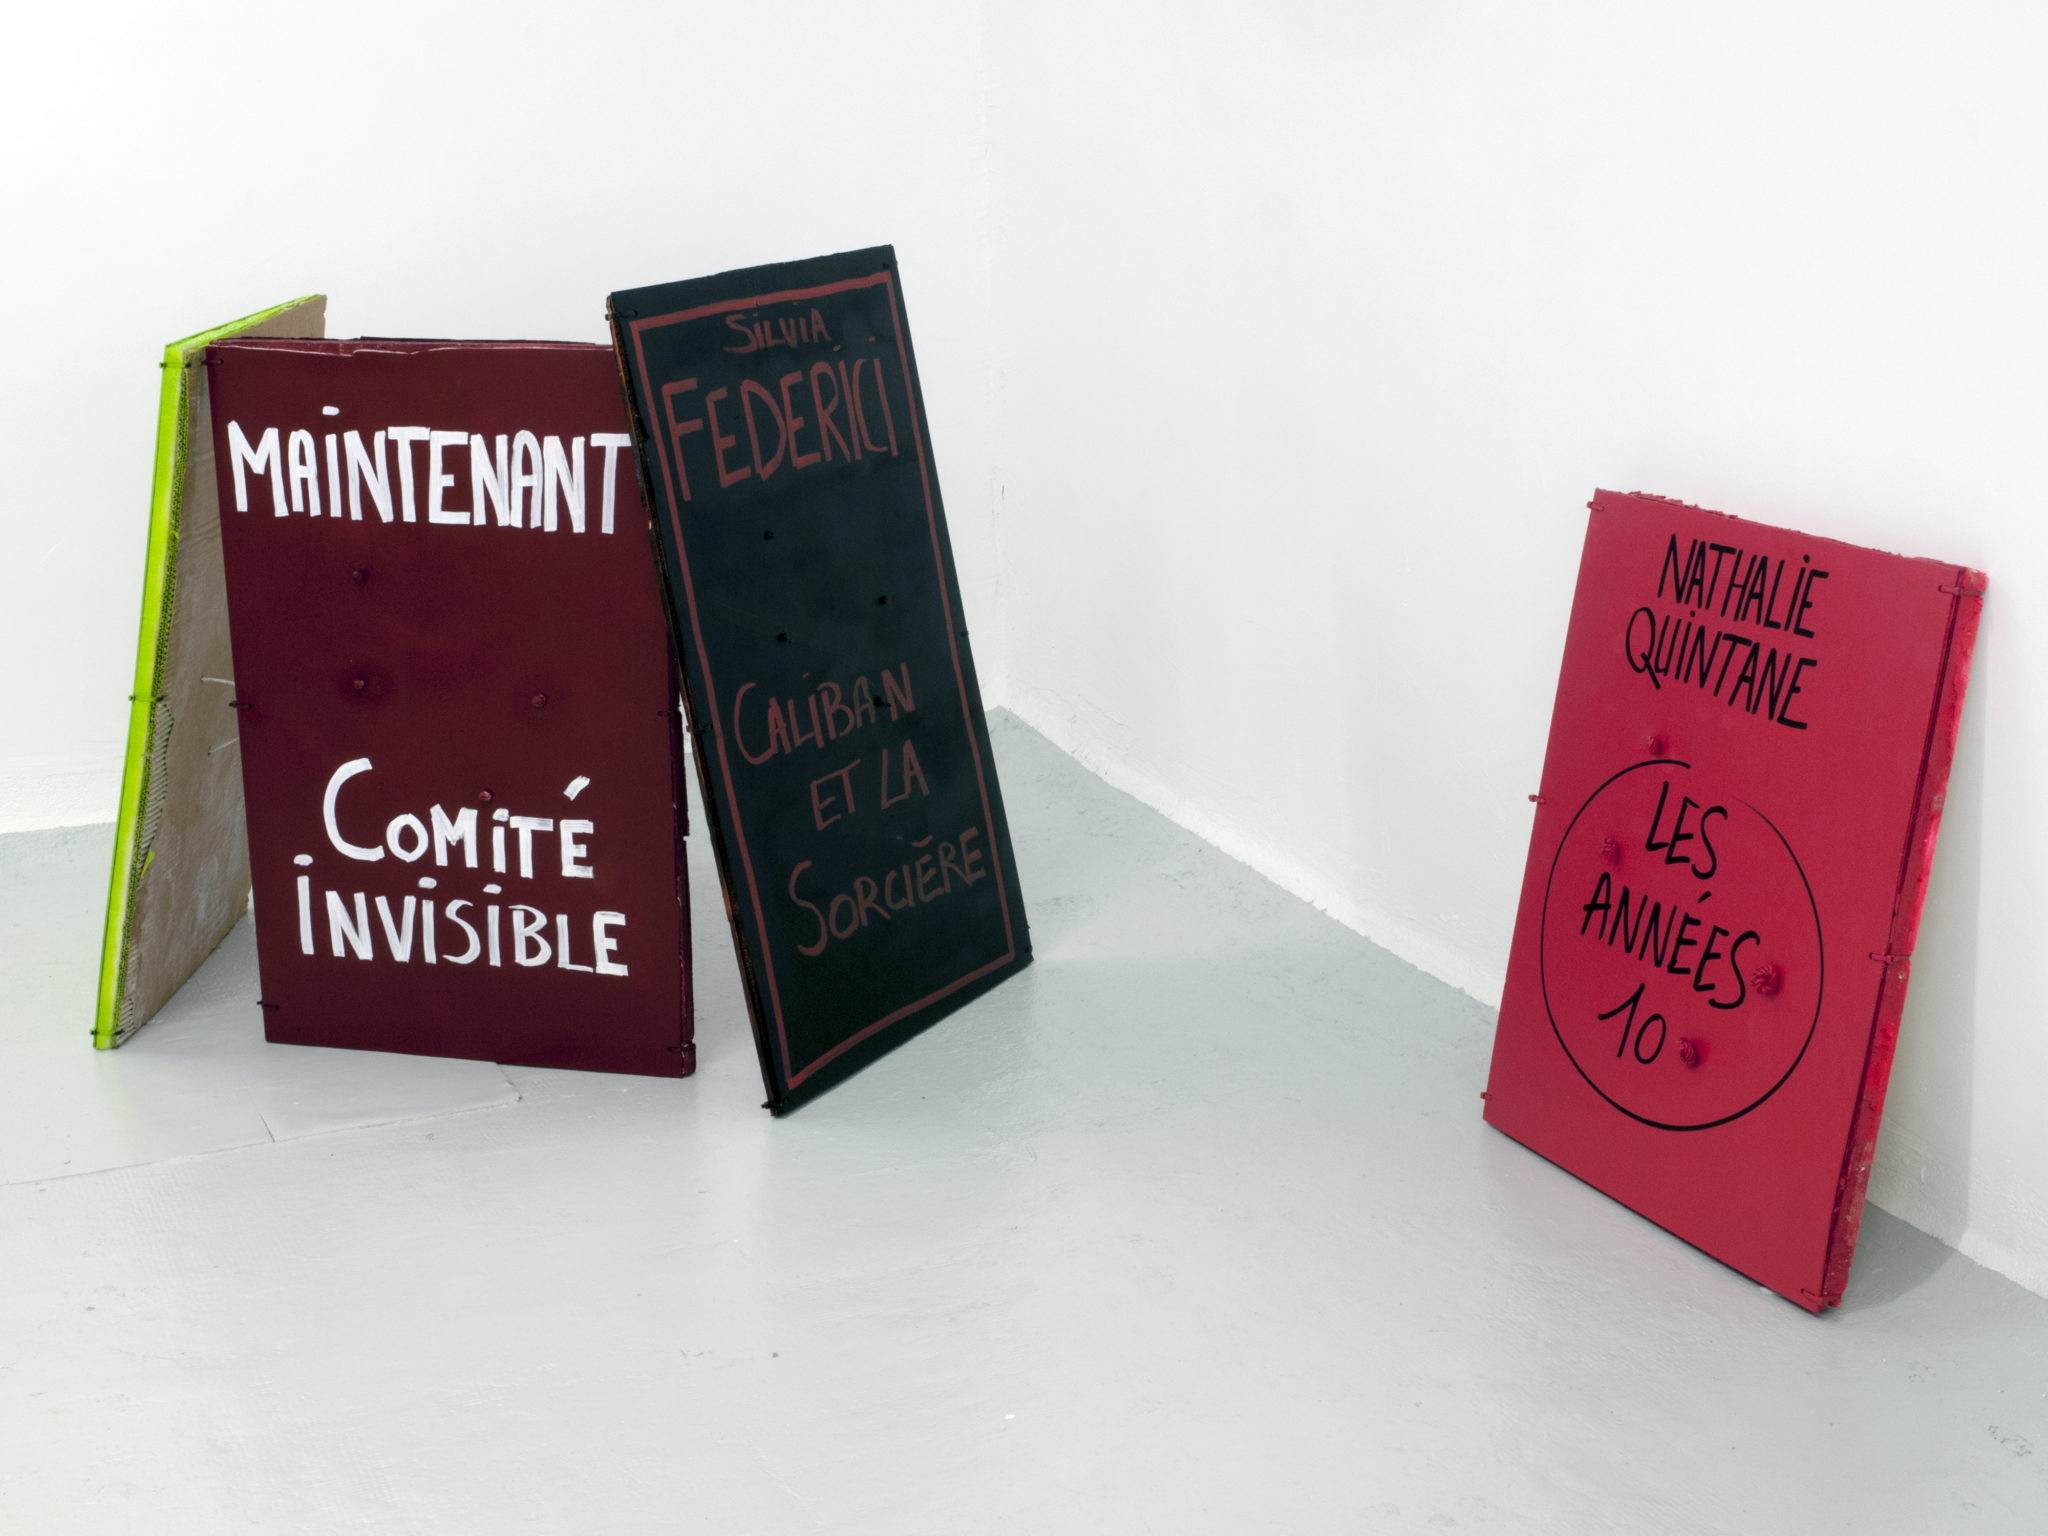 MAINTENANT
COMITÉ
INVISIBLE
SILVIA
FEDERICI
CALIBAN
ET LA
SORCIÈRE
NATHALIE
QUINTANE
LES
ANNÉES
10